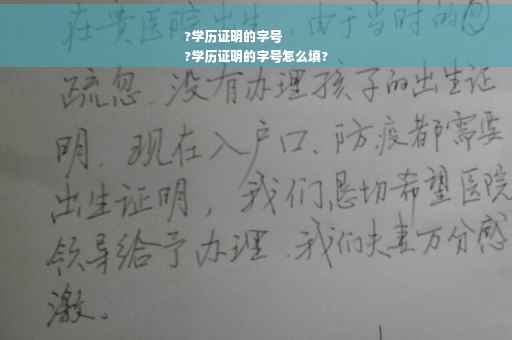 ?学历证明的字号
?学历证明的字号怎么填?
在贵医院出生，由于当时的
疏忽，没有办理孩子的出生证
明．现在入户口、防疫都需要
出生证明，我们恳切希望医院
领导给予办理．我们夫妻万分感
激。